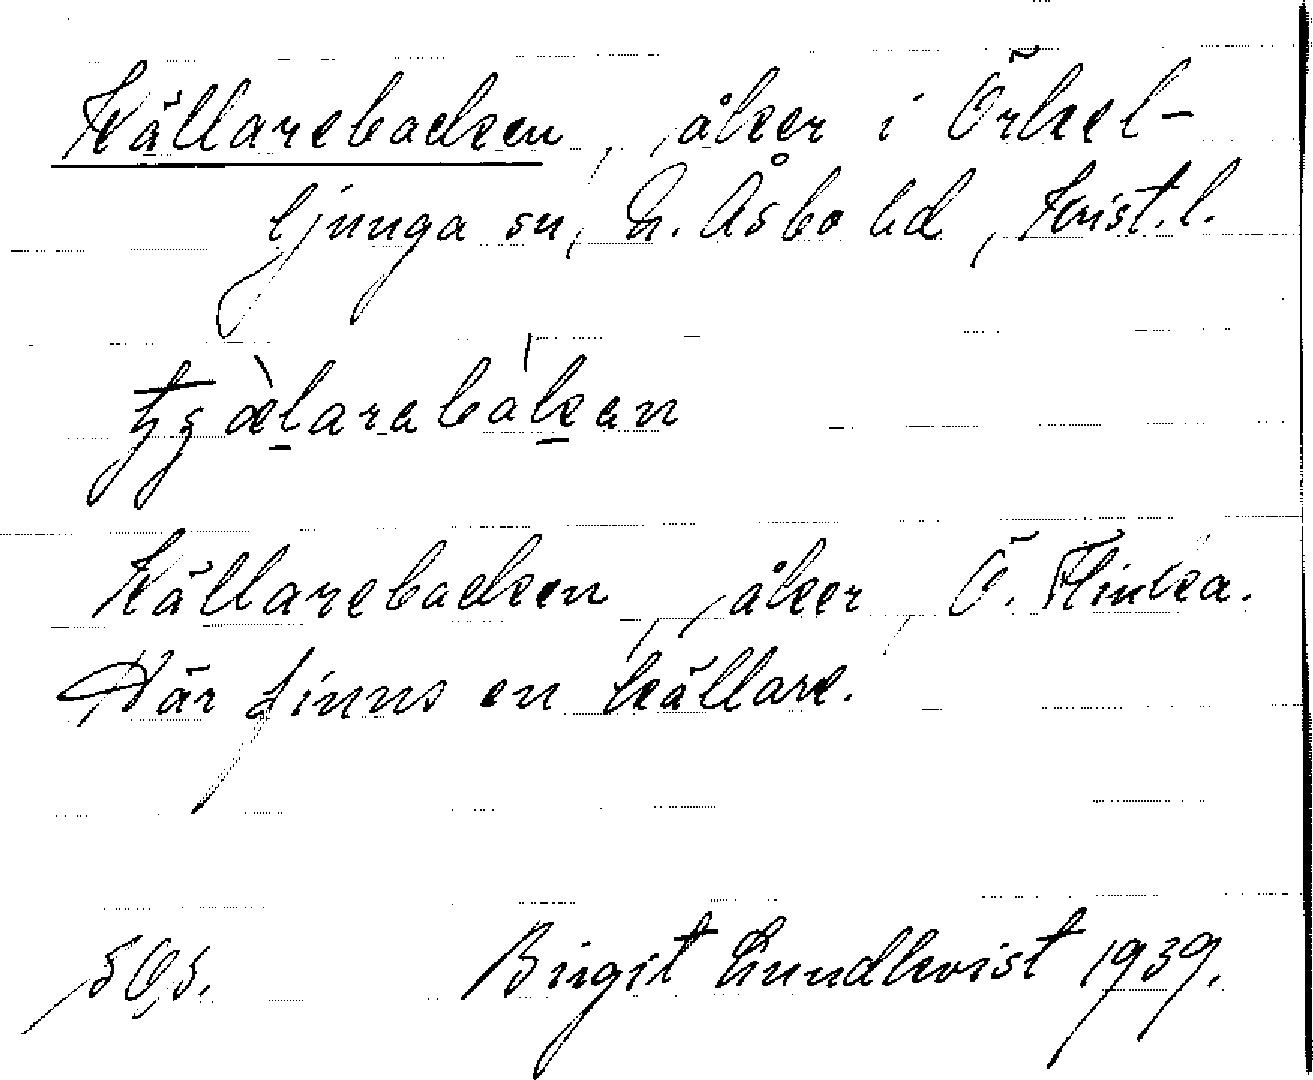 Källarebacken, åker i Örkel-
ljunga sn, N. Åsbo hd, Krist. l.
Källarebacken, åker, Ö. Flinka.
Här finns en källare.
Birgit Lundkvist 1939.